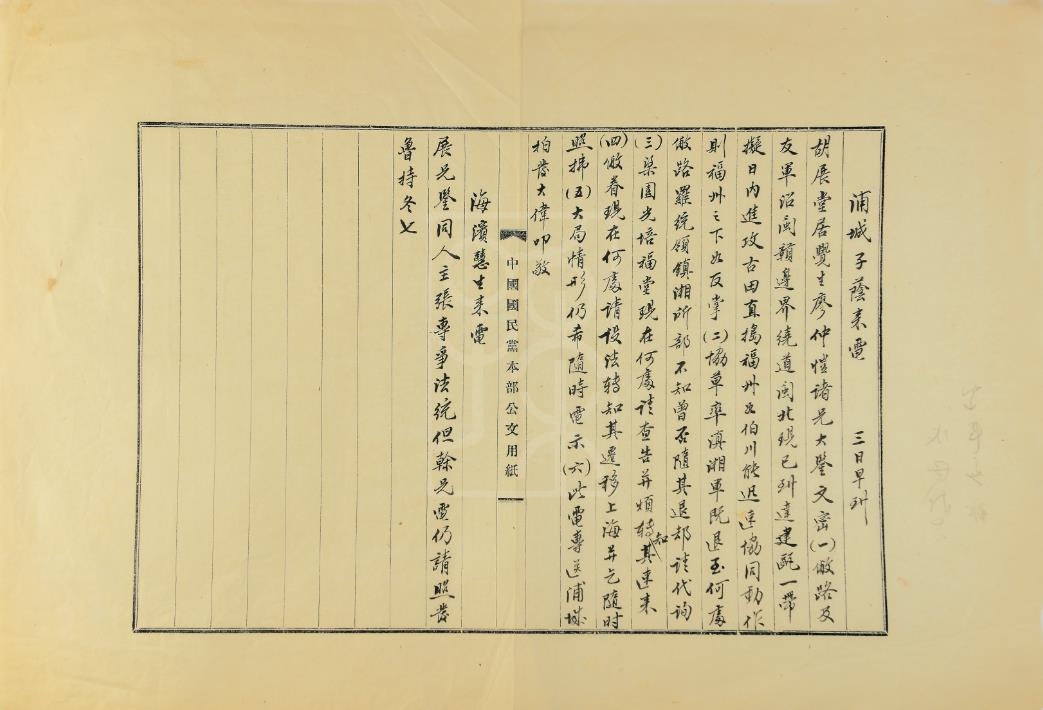 浦城子蔭来電　三日早到
胡展堂居覺生廖仲愷諸兄大鑒文密(一)傚路及
友軍沿閩贛邊界繞道閩北現已到達建甌一帶
擬日內進攻古田直搗福州如伯川能迅速協同動作
則福州之下如反掌(二)協草率滇湘軍既退至何處
傚路羅統領鎮湘所部不知曾否隨其退却請代詢
(三)梁園光培福堂現在何處請查告并煩轉知其速来
(四)傚眷現在何處請設法轉知其遷移上海并乞隨时
照拂(五)大局情形仍希隨時電示(六)此電專送浦城
拍發大偉叩敬
中國國民黨本部公文用紙
海濱慧生来電
展兄鑒同人主張專爭法統但幹兄電仍請照發
魯持冬七